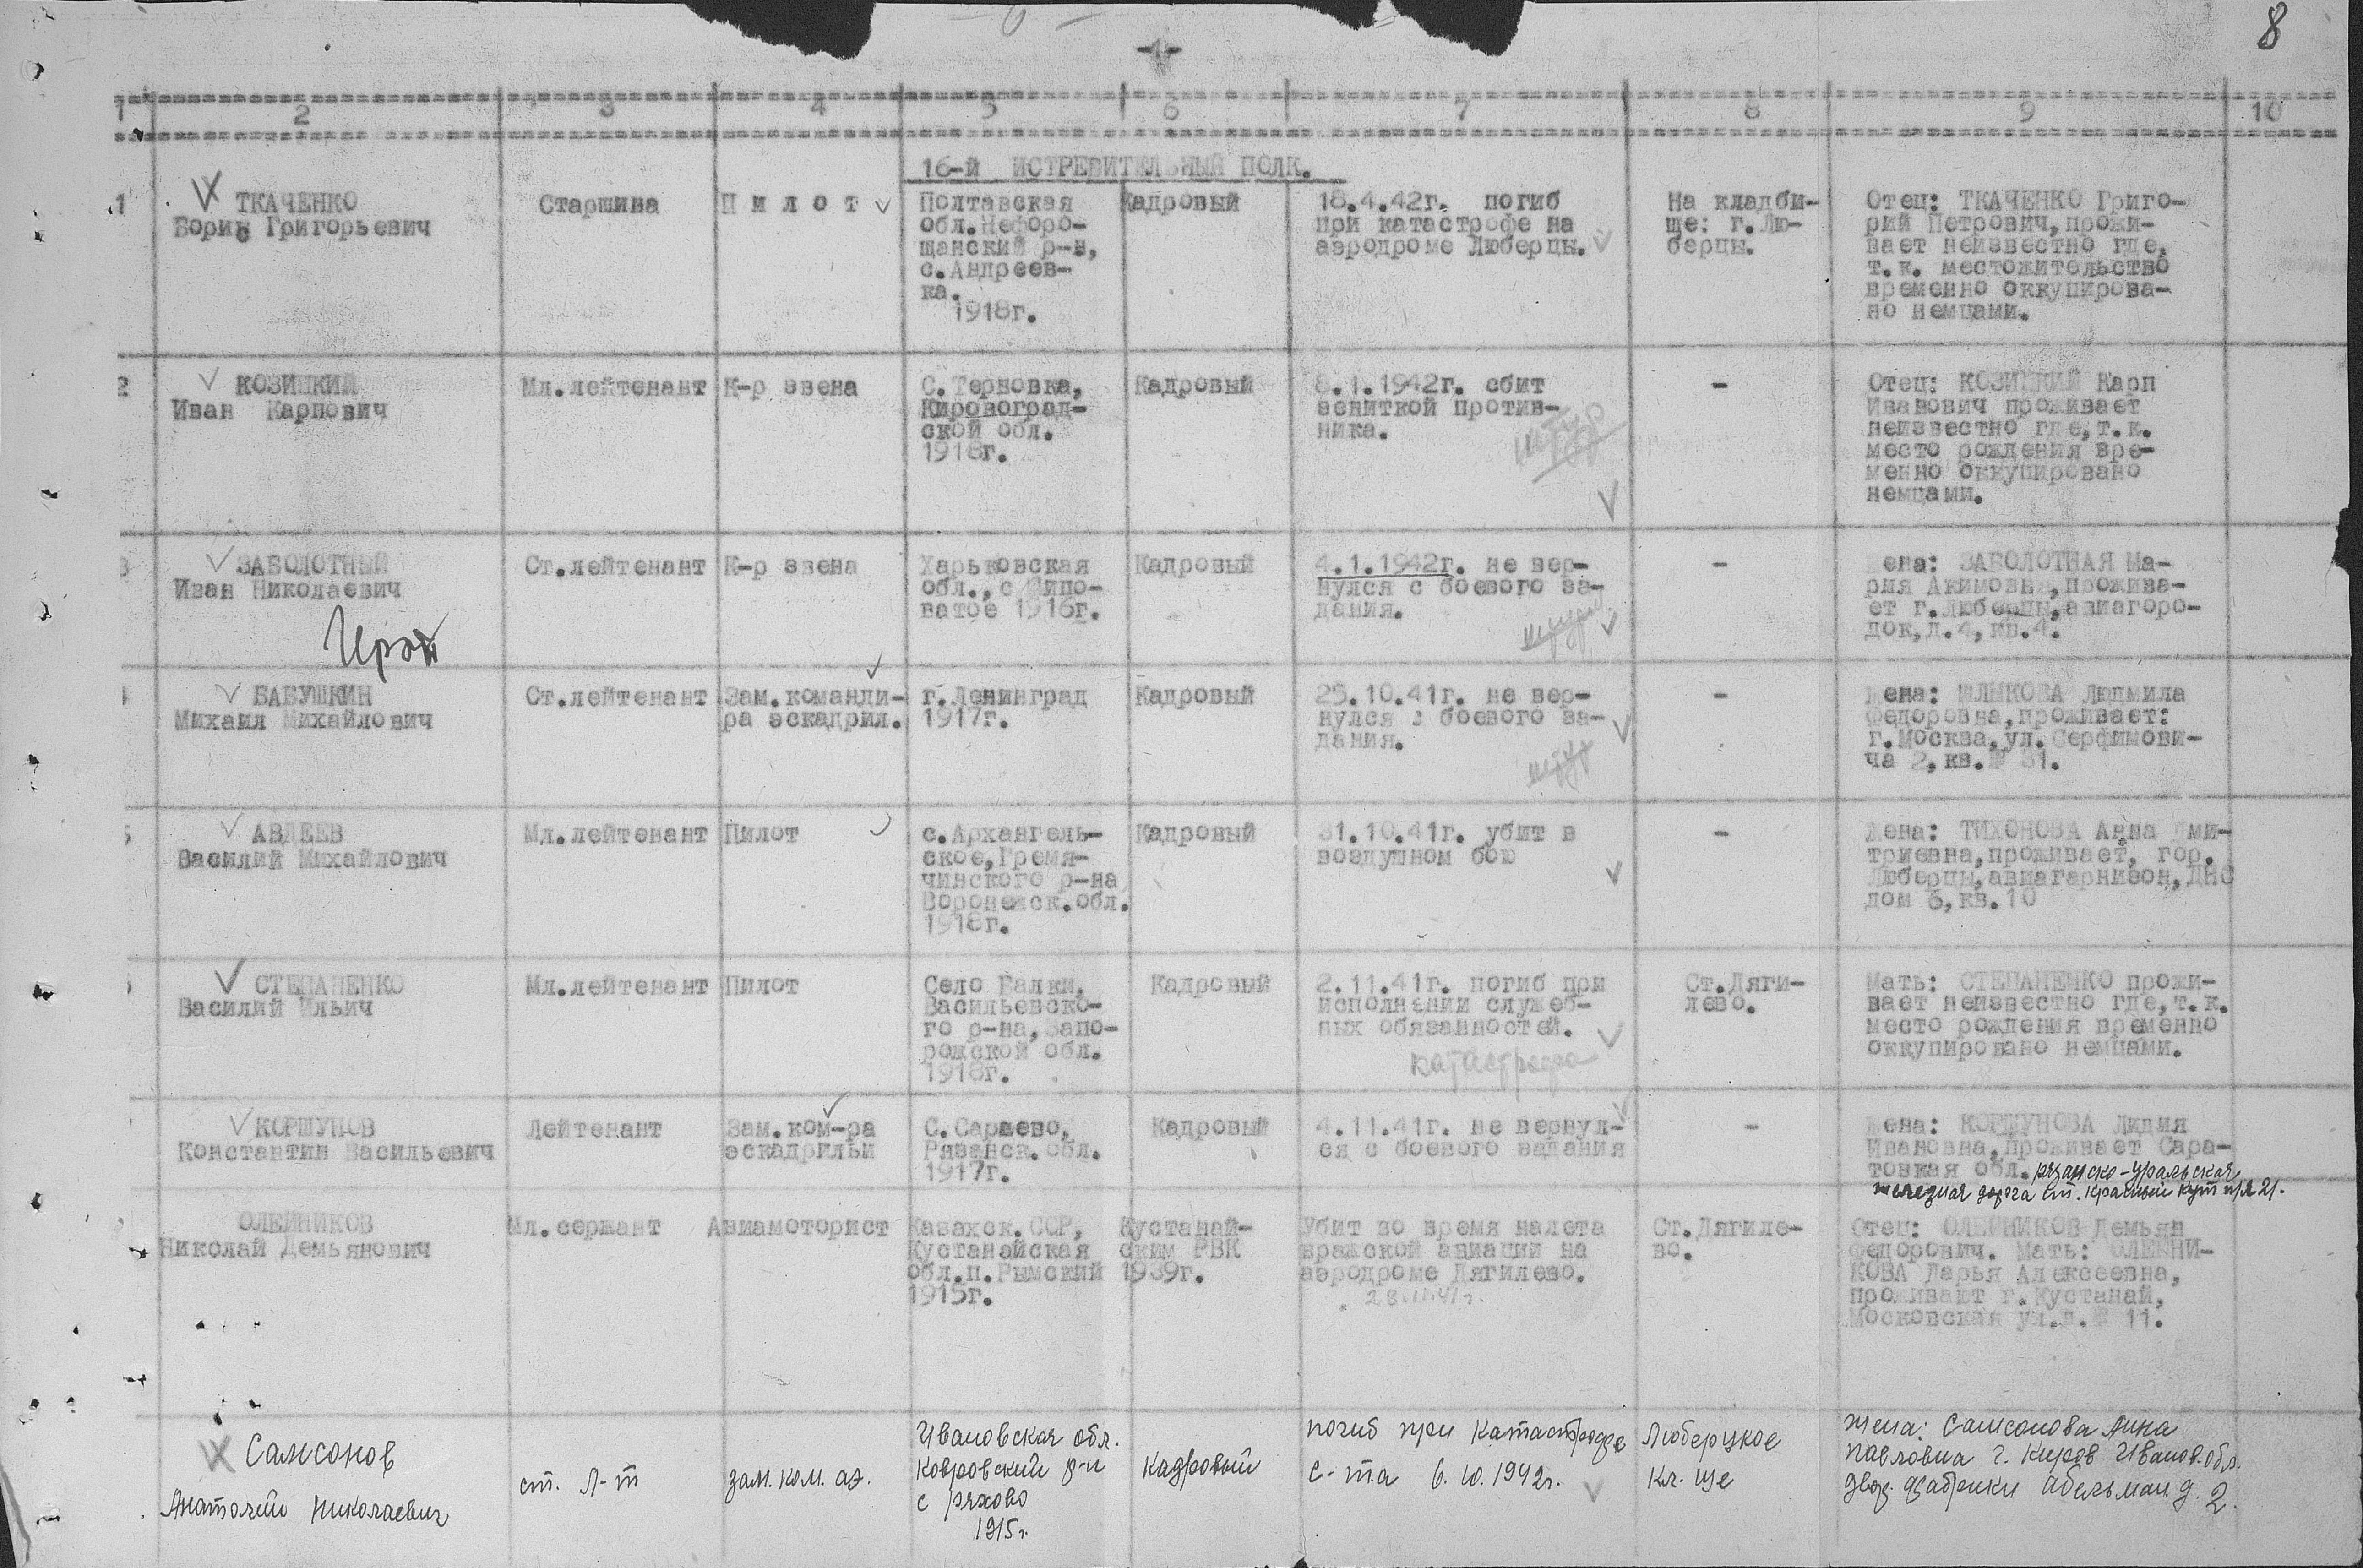 8
1 2 3 4 5 6 7 8 9 10
16-й ИСТРЕБИТЕЛЬНЫЙ ПОЛК.
1
ТКАЧЕНКО
Борис Григорьевич
Старшина
П и л о т
Полтавская
обл.Нефоро-
щанский р-н,
с.Андреев-
ка.
1918г.
Кадровый
18.4.42г. погиб
при катастрофе на
аэродроме Люберцы.
На кладби-
ще: г.Лю-
берцы.
Отец: ТКАЧЕНКО Григо-
рий Петрович,прожи-
вает неизвестно где,
т.к. местожительство
временно оккупирова-
но немцами.
2
КОЗИЦКИЙ
Иван Карпович
Мл.лейтенант
К-р звена
С.Терновка,
Кировоград-
ской обл.
1918г.
Кадровый
8.1.1942г. сбит
зениткой против-
ника.
-
Отец: КОЗИЦКИЙ Карп
Иванович проживает
неизвестно где,т.к.
место рождения вре-
менно оккупировано
немцами.
3
ЗАБОЛОТНЫЙ
Иван Николаевич
Ст.лейтенант
К-р звена
Харьковская
обл.,с Липо-
ватое 1916г.
Кадровый
4.1.1942г. не вер-
нулся с боевого за-
дания.
-
ена: ЗАБОЛОТНАЯ Ма-
рия Акимовна,прожива-
ет г.Люберцы,авиагоро-
док,д.4,кв.4.
БАБУШКИН
Михаил Михайлович
Ст.лейтенант
Зам.команди-
ра эскадрил.
г.Ленинград
1917г.
Кадровый
25.10.41г. не вер-
нулся с боевого за-
дания.
-
Жена: ШЛЫКОВА Людмила
Федоровна,проживает:
г.Москва,ул.Серфимови-
ча 2,кв.№ 31.
АВДЕЕВ
Василий Михайлович
Мл.лейтенант
Пилот
с.Архангель-
ское,Гремя-
чинского р-на
Воронежск.обл.
1918г.
Кадровый
31.10.41г. убит в
воздушном бою
-
Жена: ТИХОНОВА Анна Дми-
триевна,проживает, гор.
Люберцы,авиагарнизон,ДНС
дом 6,кв.10
СТЕПАНЕНКО
Василий Ильич
Мл.лейтенант
Пилот
Село Балки,
Васильевско-
го р-на,Запо-
рожской обл.
1918г.
Кадровый
2.11.41г. погиб при
исполнении служеб-
ных обязанностей.
катастрофа
Ст.Дяги-
лево.
Мать: СТЕПАНЕНКО прожи-
вает неизвестно где,т.к.
место рождения временно
оккупировано немцами.
КОРШУНОВ
Константин Васильевич
Лейтенант
Зам.ком-ра
эскадрильи
С.Сараево,
Рязанск.обл.
1917г.
Кадровый
4.11.41г. не вернул-
ся с боевого задания
-
Жена: КОРШУНОВА Лидия
Ивановна,проживает Сара-
товкая обл. рязанско-уральская
железная дорога ст. Красный Кут п/я 21.
ОЛЕЙНИКОВ
Николай Демьянович
Мл.сержант
Авиамоторист
Казахск.ССР,
Кустанайская
обл.п.Рымский
1915г.
Кустанай-
ским РВК
1939г.
Убит во время налета
вражской авиации на
аэродроме Дягилево.
28.11.41г.
Ст.Дягиле-
во.
Отец: ОЛЕЙНИКОВ Демьян
Федорович. Мать: ОЛЕЙНИ-
КОВА Дарья Алексеевна,
проживают г.Кустанай,
Московская ул.д.№ 11.
Самсонов
Анатолий Николаевич
ст. л-т
зам. ком. аэ.
Ивановская обл.
Ковровский р-н
с ряхово
1915г.
кадровый
погиб при катастрофе
с-та 6.10.1942г.
Люберцкое
кл-ще
жена: Самсонова Анна
Павловна г. Киров Иванов. обл.
двор. фабрики Абельман д. 2.